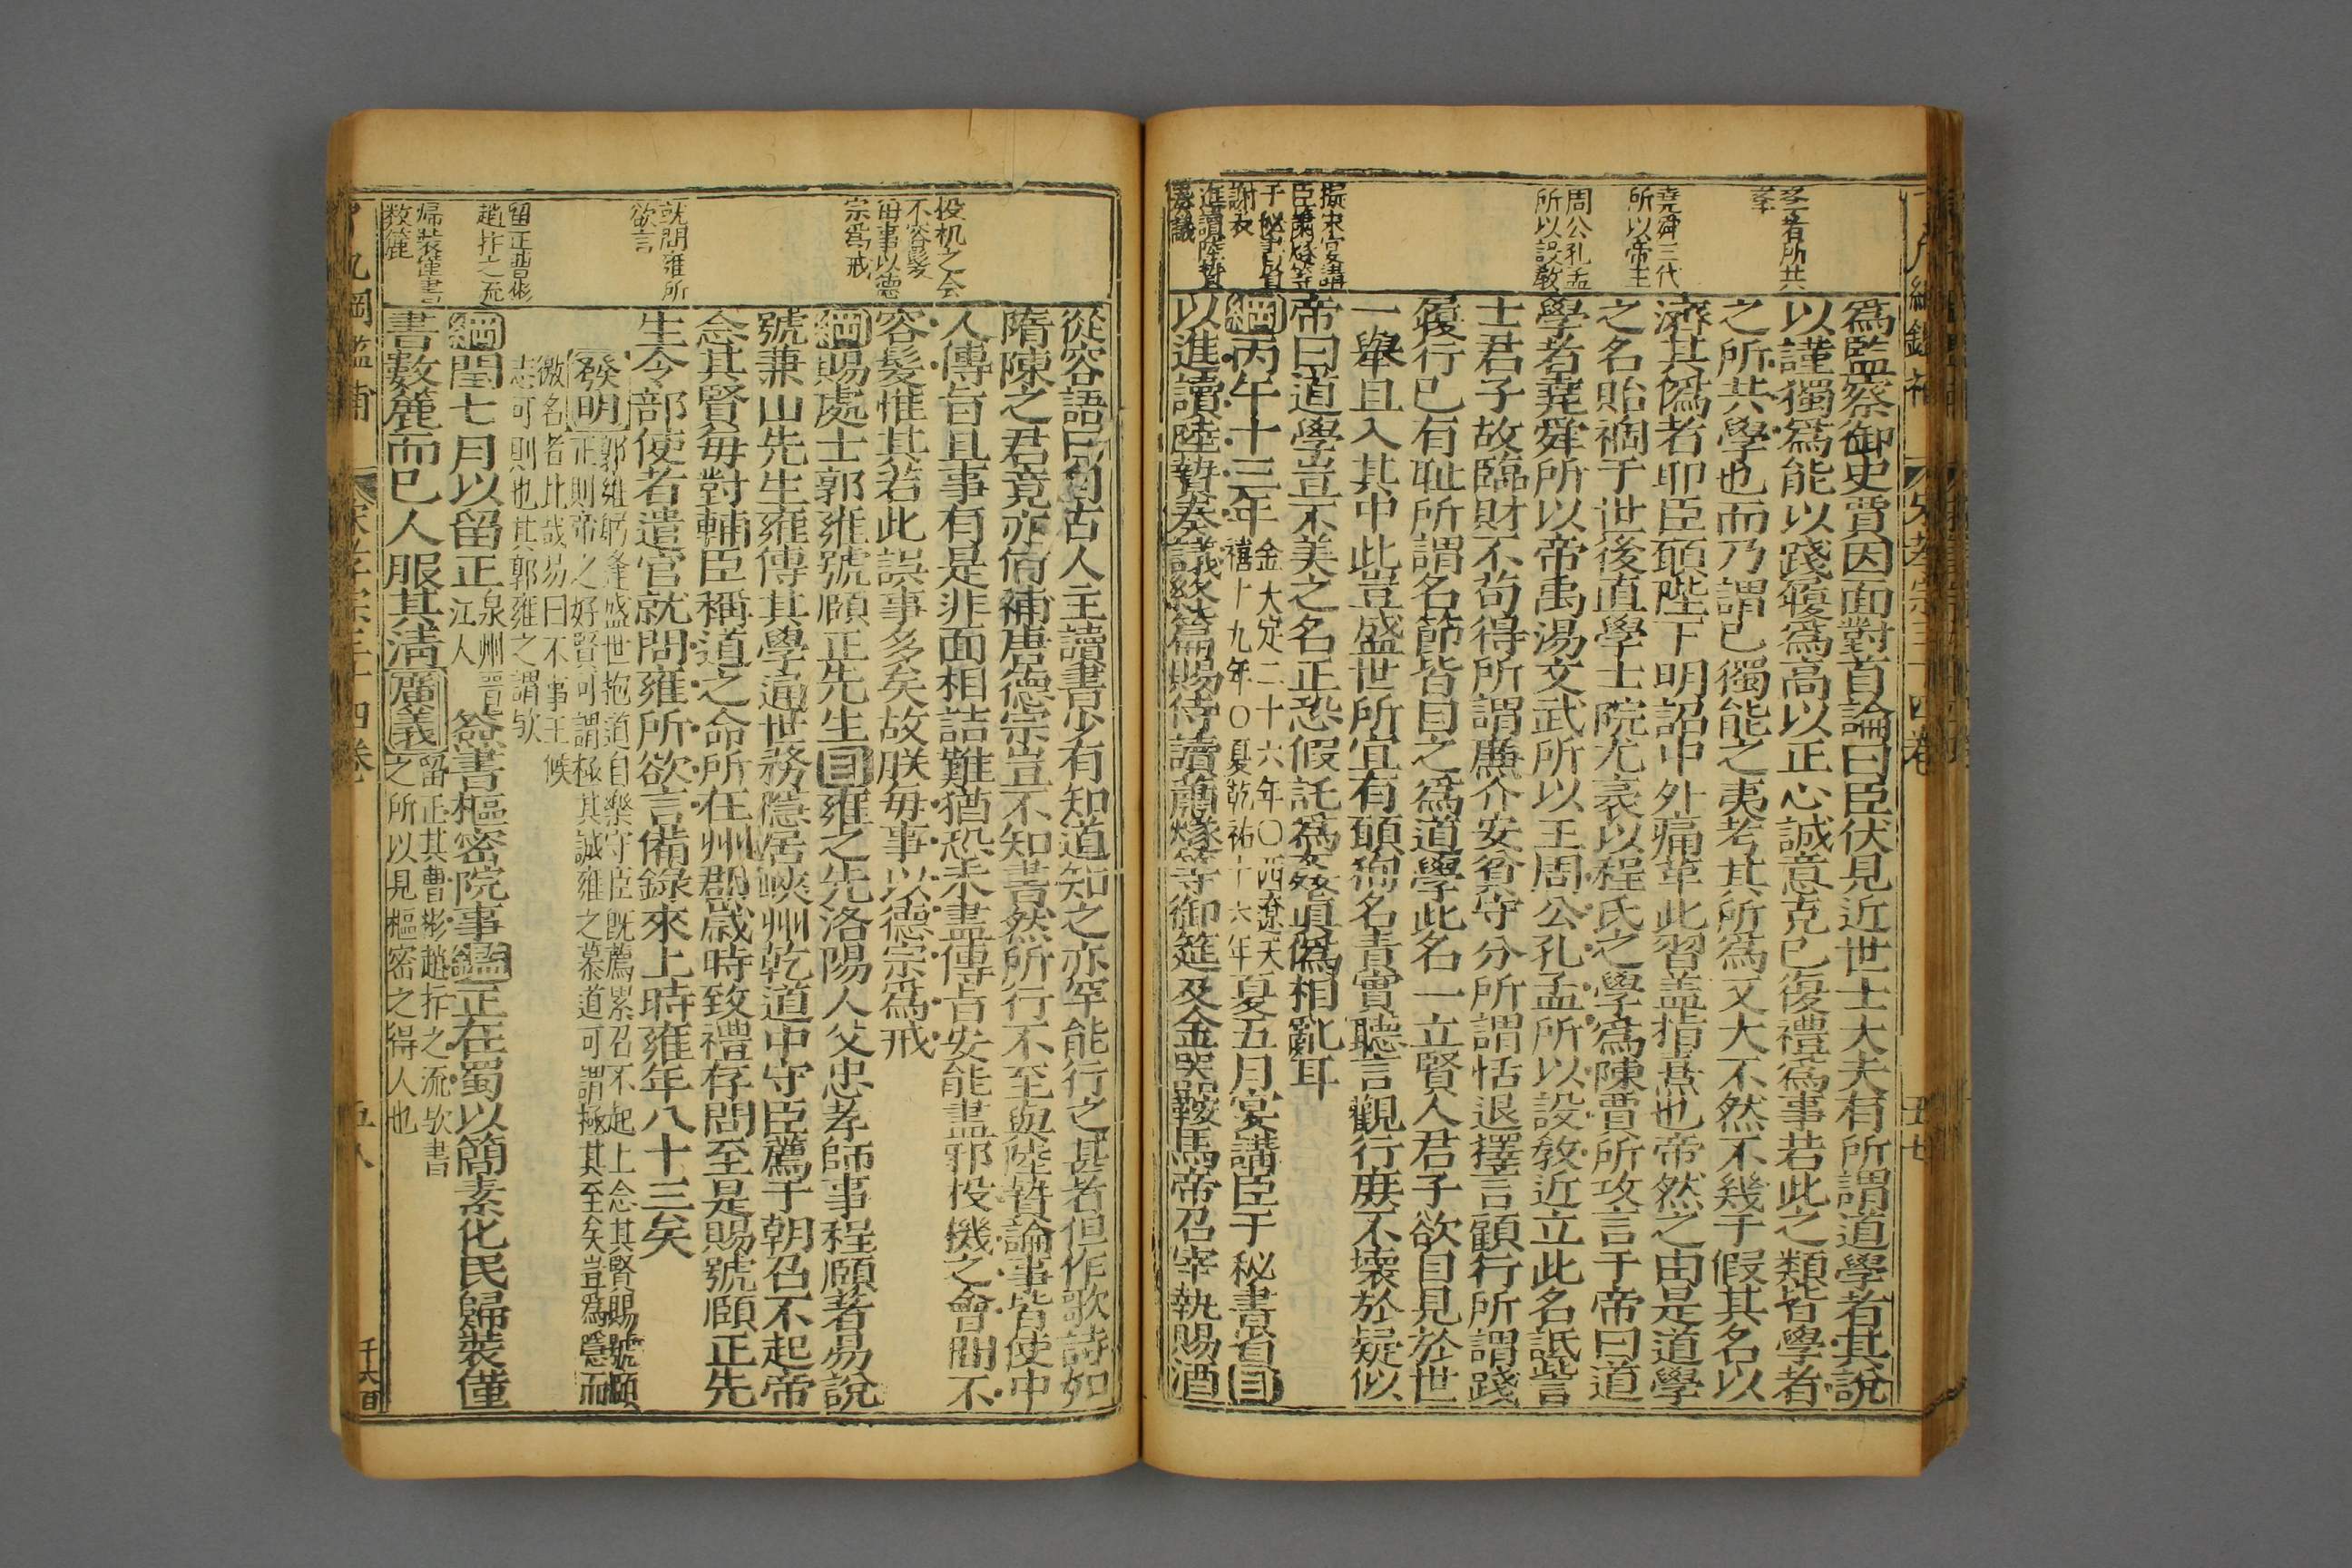 學者所共
學
堯舜三代
所以帝王
周公孔孟
所以設教
擬宋宴講
臣蕭燧等
于秘書省
謝表
進讀陸贄
奏議
爲監察御史賈因面對首論曰臣伏見近世士大夫有所謂道學者其說
以謹獨爲能以踐履爲高以正心誠意克已復禮爲事若此之類皆學者
之所共學也而乃謂已獨能之夷考其所爲又大不然不幾于假其名以
濟其僞者耶臣願陛下明詔中外痛革此習盖指熹也帝然之由是道學
之名貽禍于世後直學士院尤袤以程氏之學爲陳賈所攻言于帝曰道
學者堯舜所以帝禹湯文武所以王周公孔孟所以設教近立此名詆訾
士君子故臨財不茍得所謂廉介安貧守分所謂恬退擇言顧行所謂踐
履行已有耻所謂名節皆目之爲道學此名一立賢人君子欲自見於世
一舉且入其中此豈盛世所宜有願狥名責實聽言觀行庶不壞於疑似
帝曰道學豈不美之名正恐假託爲姦眞僞相亂耳
綱丙午十三年金大定二十六年〇西遼天禧十九年〇夏乾祐十六年夏五月宴講臣于秘書省目
以進讀陸贄奏議終篇賜侍讀蕭燧等御筵及金器鞍馬帝召宰執賜酒
宋孝宗三十四卷
五七
投机之会
不容髮
毎事以德
宗爲戒
就問雍所
欲言
留正曹彬
趙抃之流
歸裝僅書
数簏
從容語曰自古人主讀書少有知道知之亦罕能行之甚者但作歌詩如
隋陳之君竟亦何補唐德宗豈不知書然所行不至與陸贄論事皆使中
人傳旨且事有是非面相詰難猶恐未盡傳旨安能盡邪投機之會間不
容髮惟其若此誤事多矣故朕毎事以德宗爲戒
綱賜處士郭雍號頤正先生目雍之先洛陽人父忠孝師事程頤著易說
號兼山先生雍傳其學通世務隱居峽州乾道中守臣薦于朝召不起帝
念其賢毎對輔臣稱道之命所在州郡歲時致禮存問至是賜號頤正先
生令部使者遣官就問雍所欲言備錄來上時雍年八十三矣
發明郭雍躬逢盛世抱道自樂守臣旣薦累召不起上念其賢賜號頤
正則帝之好賢可謂極其誠雍之慕道可謂極其至矣豈爲隱而
徼名者比哉易曰不事王候
志可則也其郭雍之謂欤
綱閏七月以留正泉州晋江人簽書樞密院事鑑正在蜀以簡素化民歸裝僅
書數簏而已人服其淸廣義留正其曹彬趙抃之流欤書之所以見樞密之得人也
綱鑑補
宋孝宗三十四卷
五八